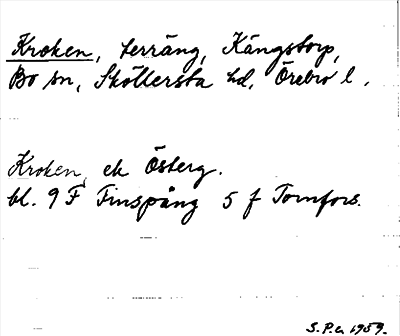 Kroken, terräng, Kängstorp,
Bo sn, Sköllersta hd, Örebro l.
Kroken, ek Österg.
bl. 9 F Finspång 5 f Tornfors.
S.P.a. 1959.